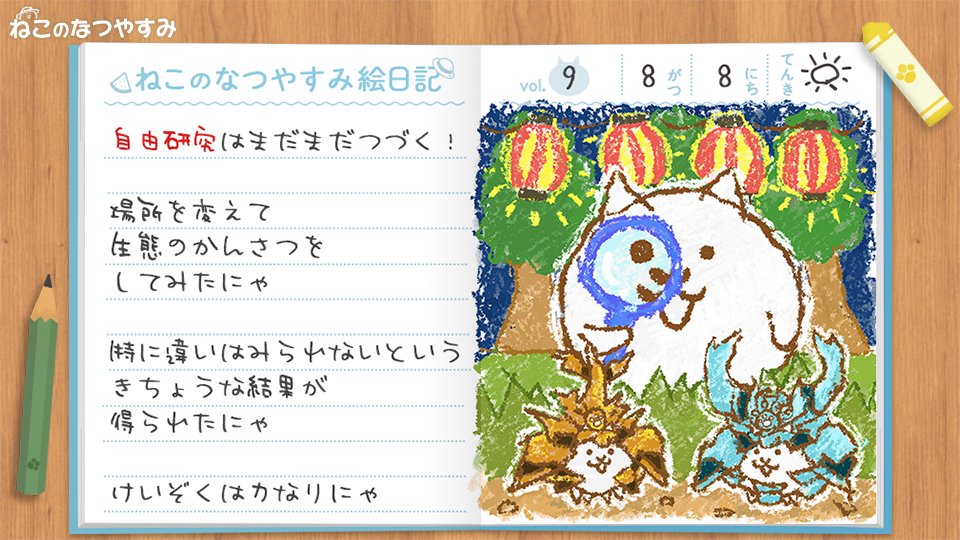 ねこのなつやすみ
ねこのなつやすみ絵日記
vol. 9 8がつ 8にち てんき
自由研究はまだまだつづく！
場所を変えて
生態のかんさつを
してみたにゃ
特に違いはみられないという
きちょうな結果が
得られたにゃ
けいぞくは力なりにゃ